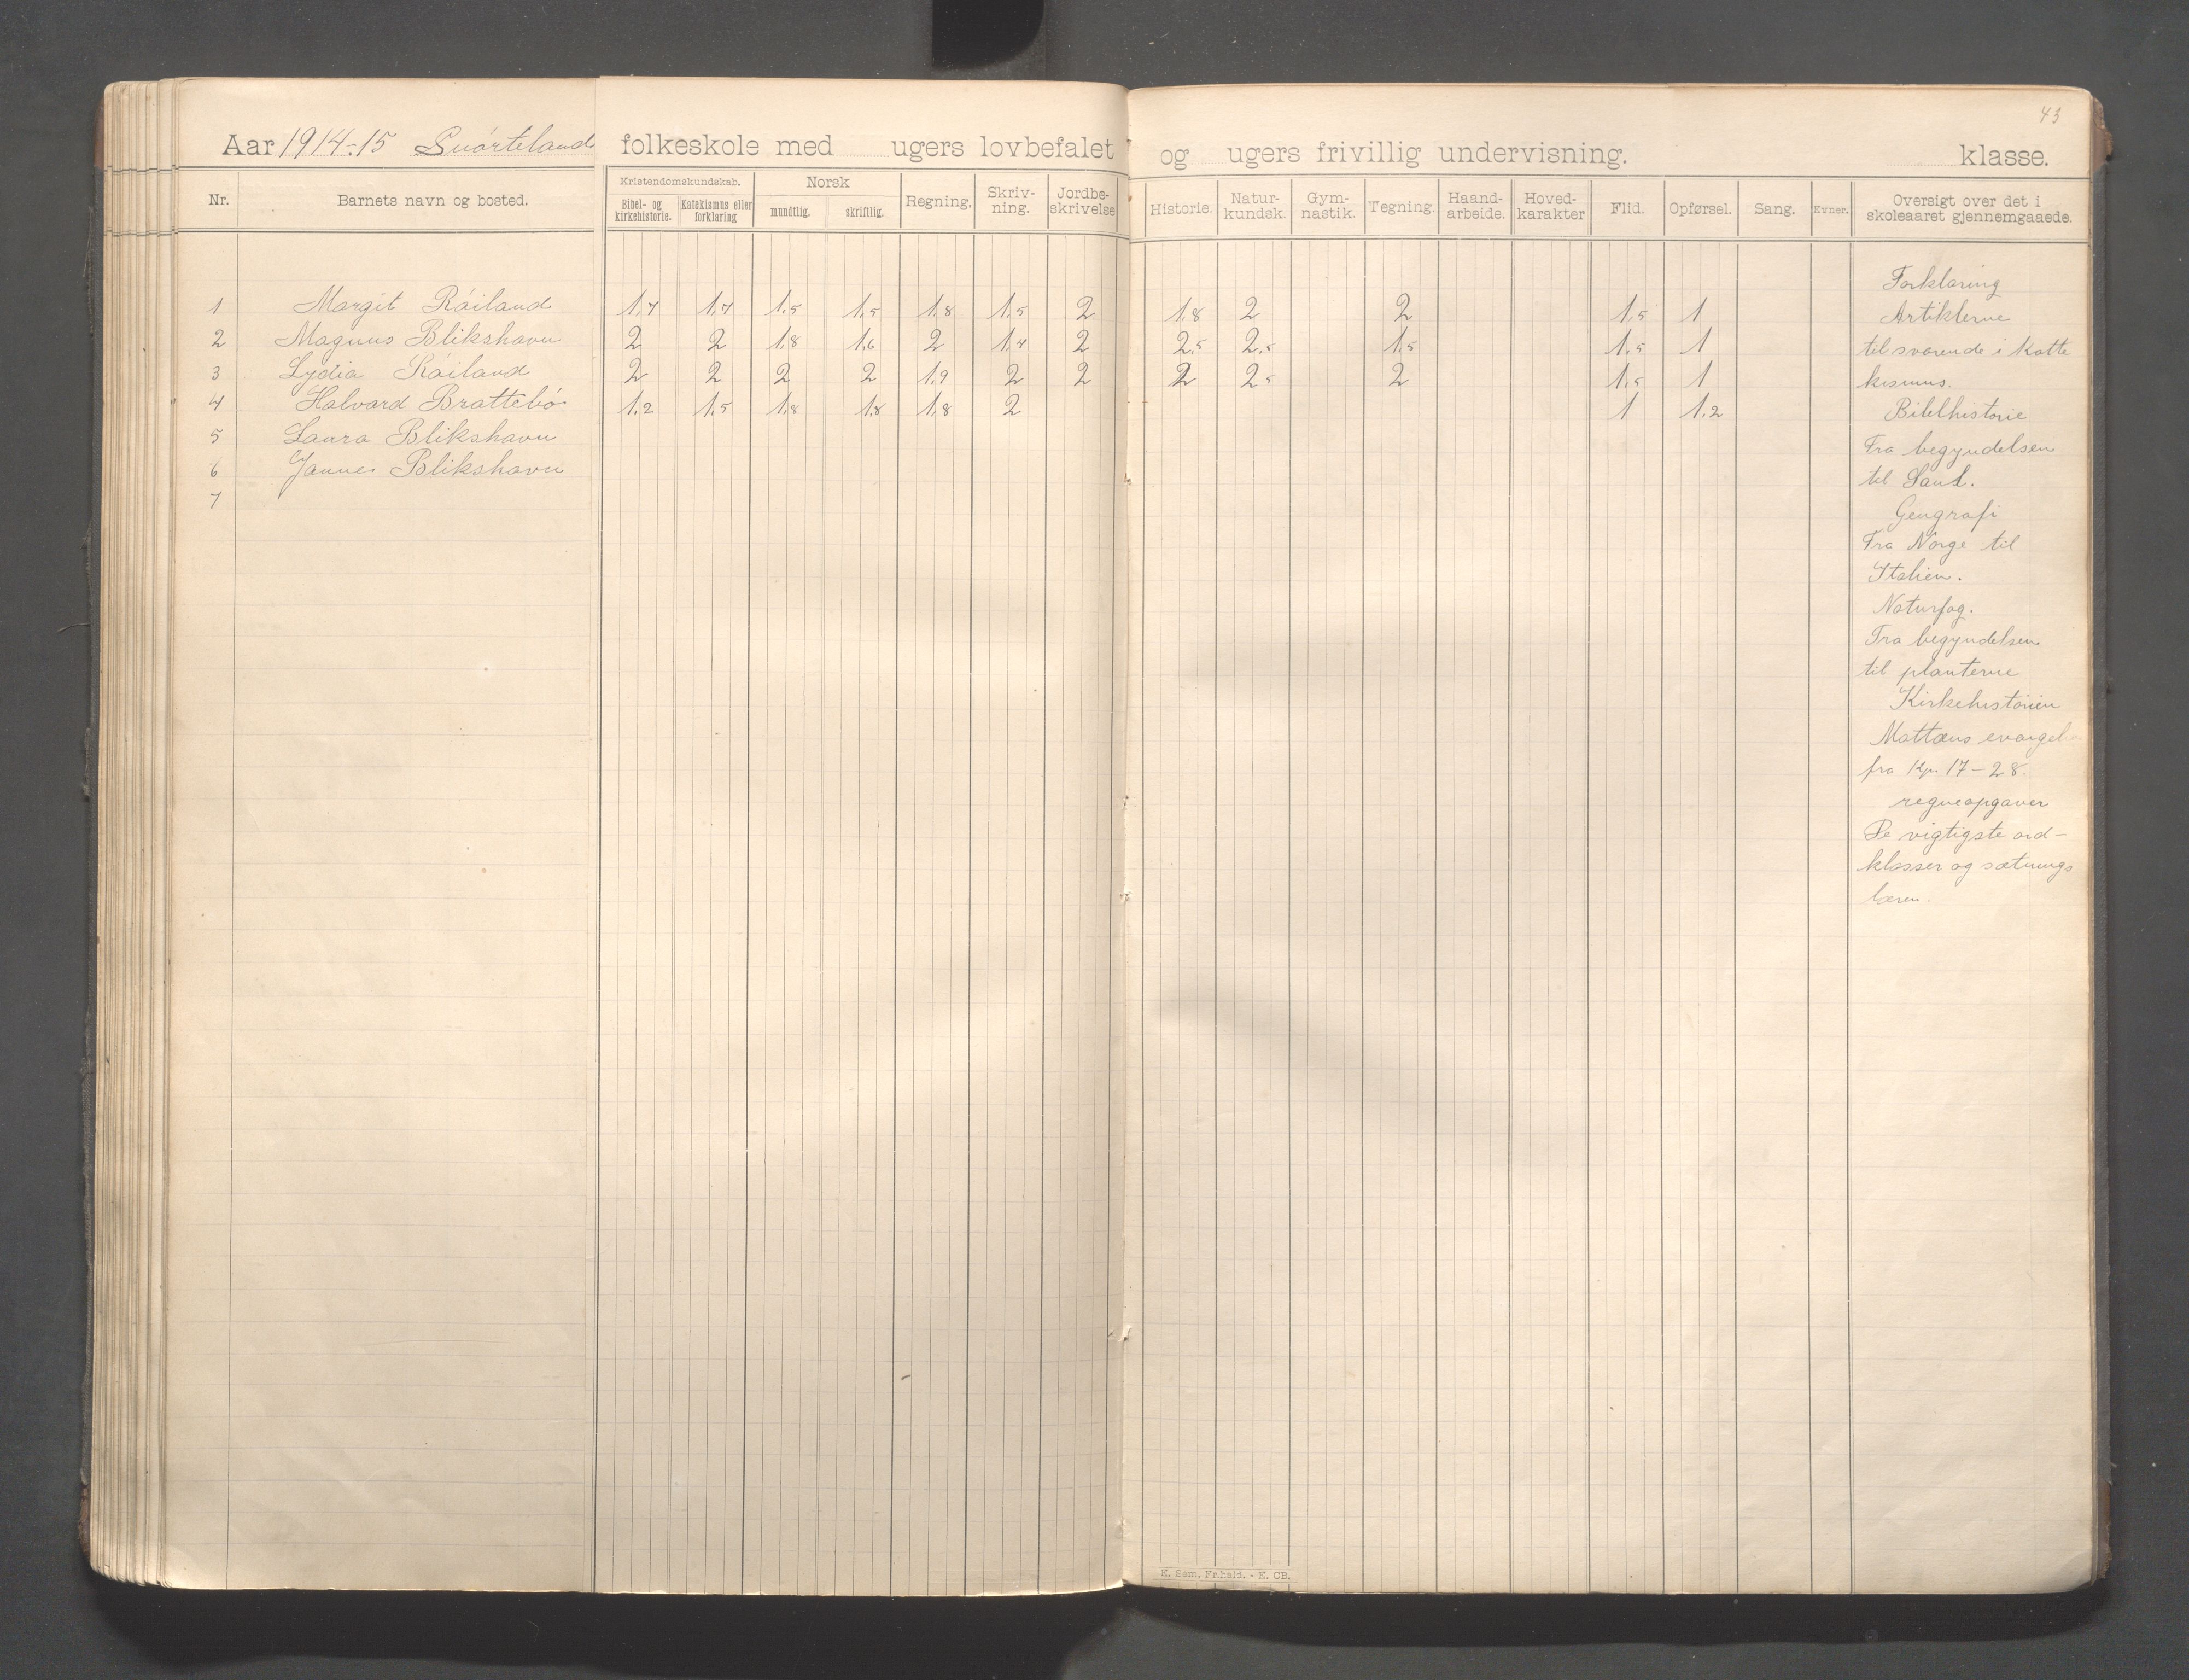 43
Aar 1914-15 Svórteland folkeskole med ugers lovbefalet og ugers frivillig undervisning. klasse.
Nr. Barnets navn og bosted. Kristendomskundskab. Bibel- og kirkehistorie. Katekismus eller forklaring Norsk mundtlig. skriftlig. Regning. Skriv-ning. Jordbe-skrivelse Historie. Natur-kundsk. Gym-nastik. Tegning. Haand-arbeide. Hoved-karakter Flid. Opførsel. Sang. Evner. Oversigt over det i skoleaaret gjennemgaaede.
1 Margit Róiland 1,7 1,7 1,5 1,5 1,8 1,5 2 1,8 2 2 1,5 1
2 Magnus Blikshavn 2 2 1,8 1,6 2 1,4 2 2,5 2,5 1,5 1,5 1
3 Lydia Róiland 2 2 2 2 1,9 2 2 2 2,5 2 1,5 1
4 Halvard Brattebó 1,2 1,5 1,8 1,8 1,8 2 1 1,2
5 Laura Blikshavn
6 Janne Blikshavn
7
Forklaring
Artiklerne
tilsvarende i Katte
kismus.
Bibelhistorie
Fra begyndelsen
til Saul.
Geografi
Fra Norge til
Italien.
Naturfag.
Fra begyndelsen
til planterne
Kirkehistorien
Mattæus evangeli
fra Kp. 17-28.
regneopgaver
De vigtigste ord-
klasser og sætnings
læren.
E. Sem. Fr.hald. - E. CB.